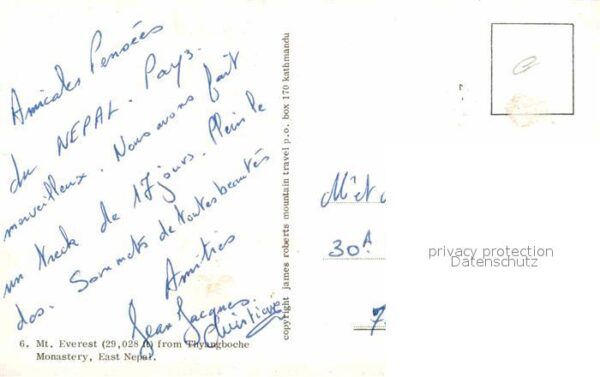 Amicales Pensées
du NEPAL. Pays
merveilleux. Nous avons fait
un Treck de 17 jours. Plein le
dos. Sommets de toutes beautés
Amitiés
Jean Jacques
6. Mt. Everest (29,028 ft) from Thyangboche
Monastery, East Nepal.
copyright james roberts mountain travel p.o. box 170 kathmandu
M. et
30A
7
privacy protection
Datenschutz